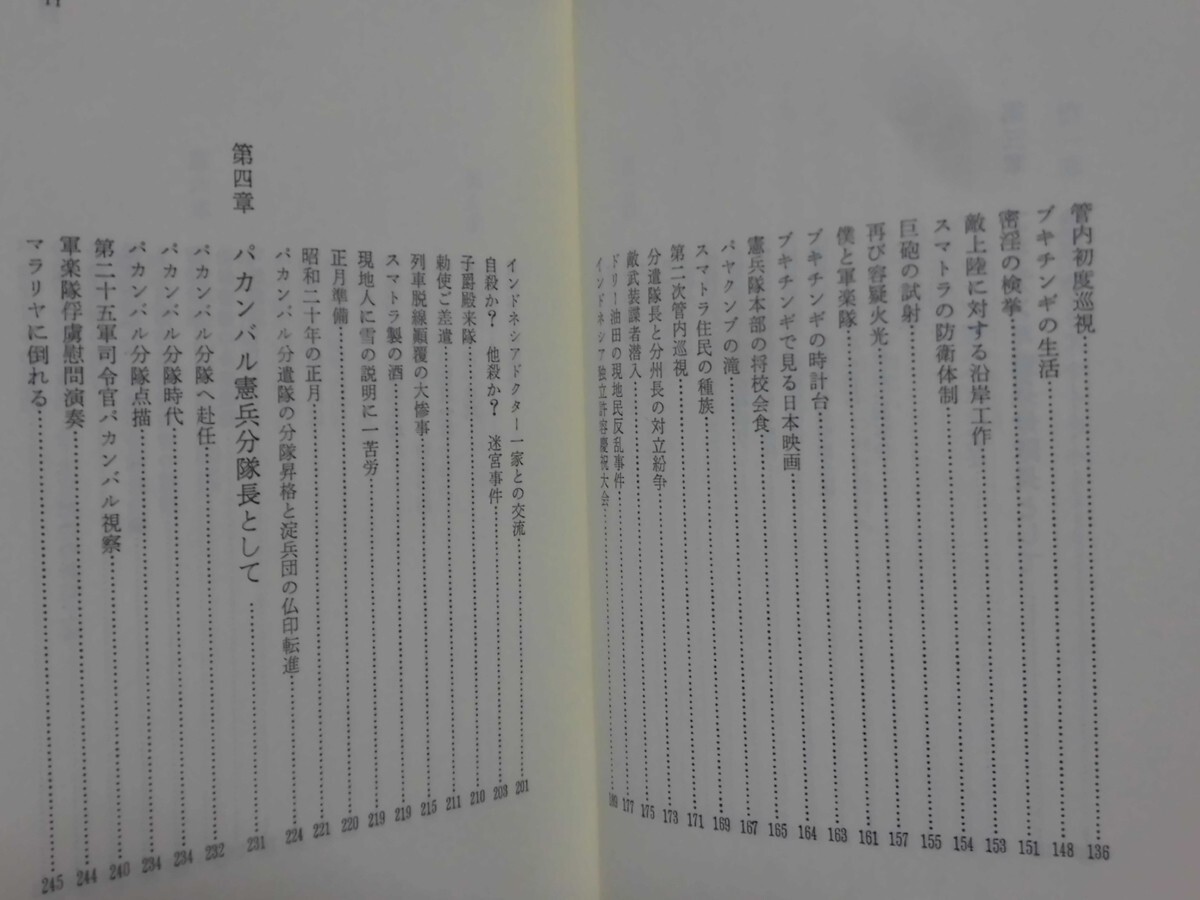 管内初度巡視……136
ブキチンギの生活……148
密淫の検挙……151
敵上陸に対する沿岸工作……153
スマトラの防衛体制……154
巨砲の試射……155
再び容疑火光……157
僕と軍楽隊……161
ブキチンギの時計台……163
ブキチンギで見る日本映画……164
憲兵隊本部の将校会食……165
パヤクンブの滝……167
スマトラ住民の種族……169
第二次管内巡視……171
分遣隊長と分州長の対立紛争……173
敵武装諜者潜入……175
ドリー油田の現地民反乱事件……177
インドネシア独立許容慶祝大会……180
インドネシアドクター一家との交流……201
自殺か? 他殺か? 迷宮事件……203
子爵殿来隊……210
勅使ご差遣……211
列車脱線顚覆の大惨事……215
スマトラ製の酒……219
現地人に雪の説明に一苦労……219
正月準備……220
昭和二十年の正月……221
パカンバル分遣隊の分隊昇格と淀兵団の仏印転進……224
第四章 パカンバル憲兵分隊長として……231
パカンバル分隊へ赴任……232
パカンバル分隊時代……234
パカンバル分隊点描……234
第二十五軍司令官パカンバル視察……240
軍楽隊俘虜慰問演奏……244
マラリヤに倒れる……245